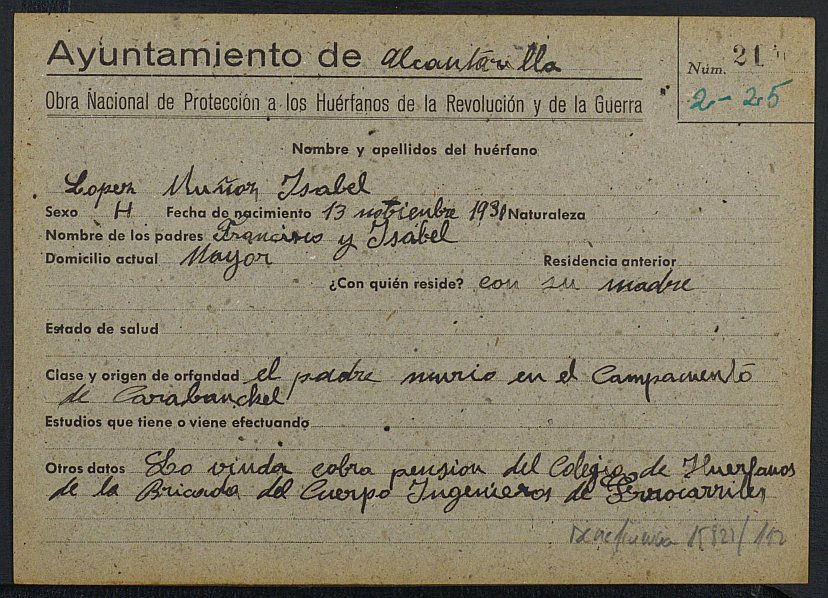 Ayuntamiento de Alcantarilla
Núm. 21
2-25
Obra Nacional de Protección a los Huérfanos de la Revolución y de la Guerra
Nombre y apellidos del huérfano
Lopez Muñoz Isabel
Sexo H Fecha de nacimiento 13 Naturaleza
Nombre de los padres Francisco y Isabel
Domicilio actual Mayor Residencia anterior
¿Con quién reside? con su madre
Estado de salud
Clase y origen de orfandad el padre murio en el Campamento
de Carabanchel
Estudios que tiene o viene efectuando
Otros datos La viuda cobra pension del Colegio de Huerfanos
de la Bricada del Cuerpo Ingenieros de Ferrocarriles